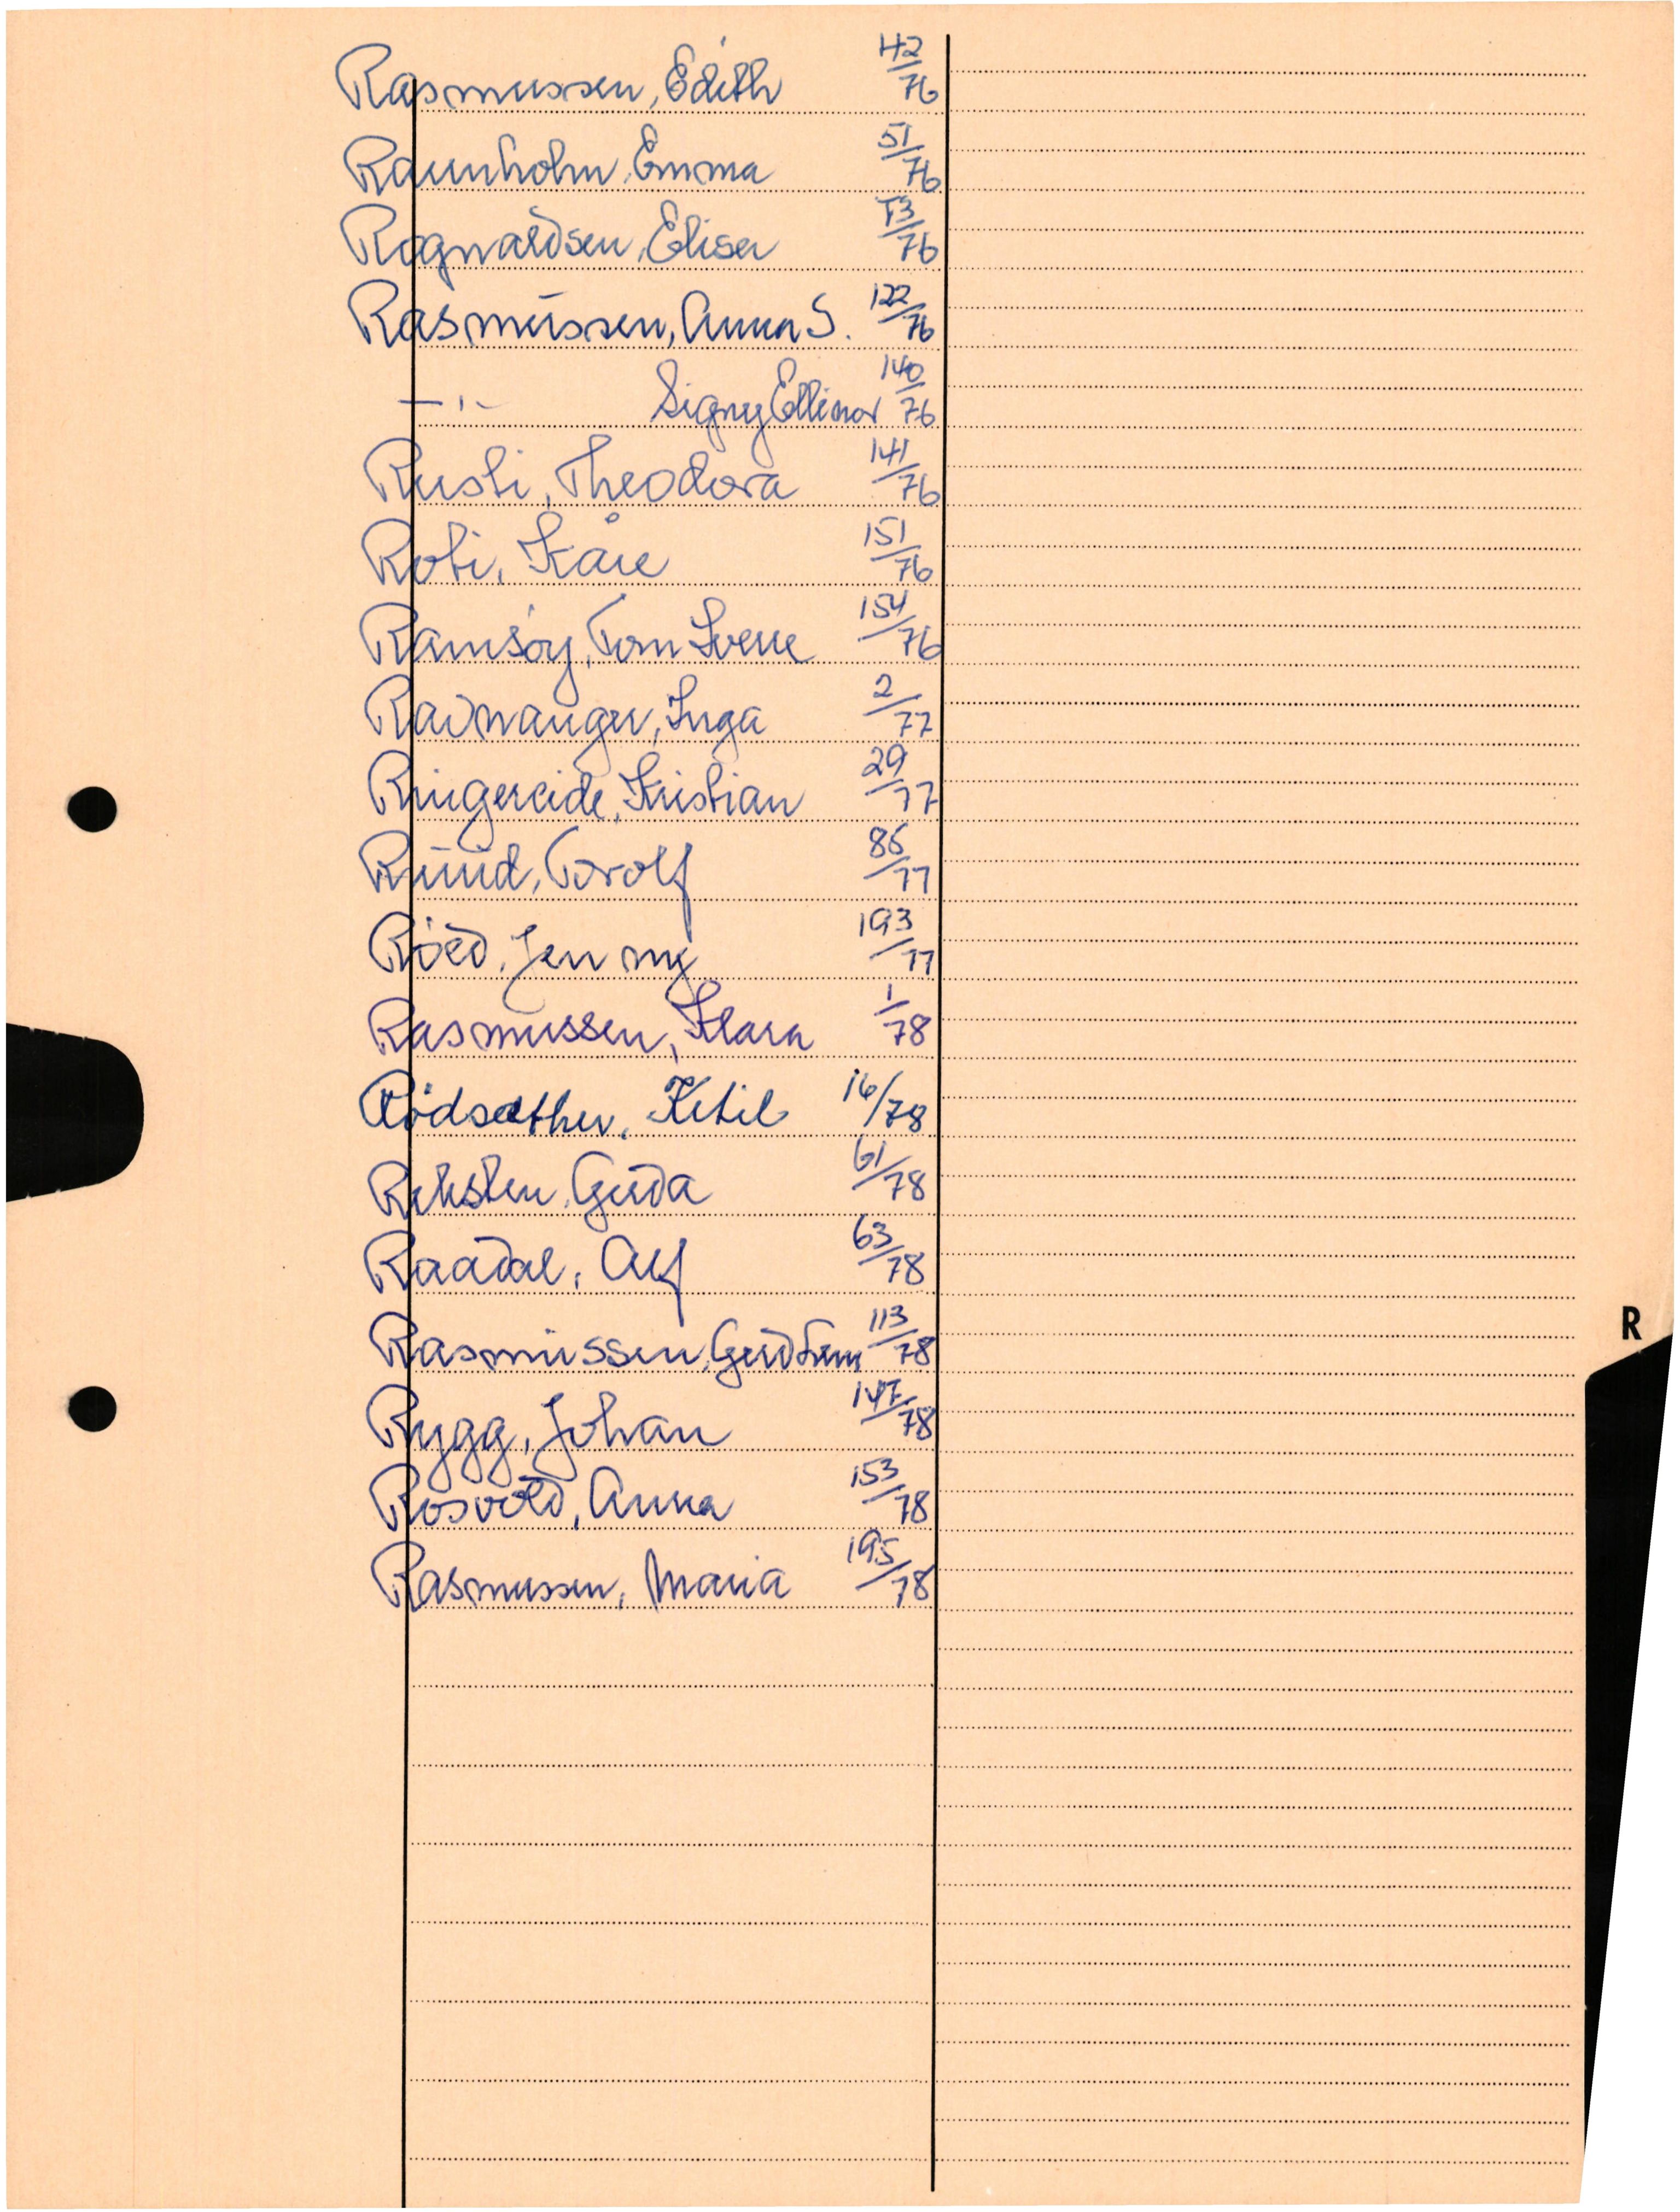 Rasmussen, Edith 42/76
Raunholm, Emma 51/76
Rognaldsen, Elisa 73/76
Rasmussen, Anna S. 122/76
—"— Signy Ellinor 140/76
Rusti, Theodora 141/76
Roti, Kåre 151/76
Ramsøy, Tom Sverre 154/76
Radmanger, Inga 2/77
Ringereide, Kristian 29/77
Ruud, Torolf 86/77
Röed, Jenny 193/77
Rasmussen, Klara 1/78
Rödsæther, Ketil 16/78
Reksten, Gerda 61/78
Raadal, Alf 63/78
Rasmussen, Gerd 113/78
R
Rygg, Johan 147/78
Rosvold, Anna 153/78
Rasmussen, Maria 195/78